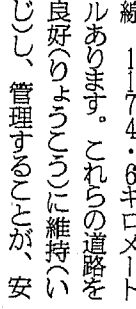 線、１１７４・６キロメート
ルあります。これらの道路を
良好（りょうこう）に維持（い
じ）し、管理することが、安